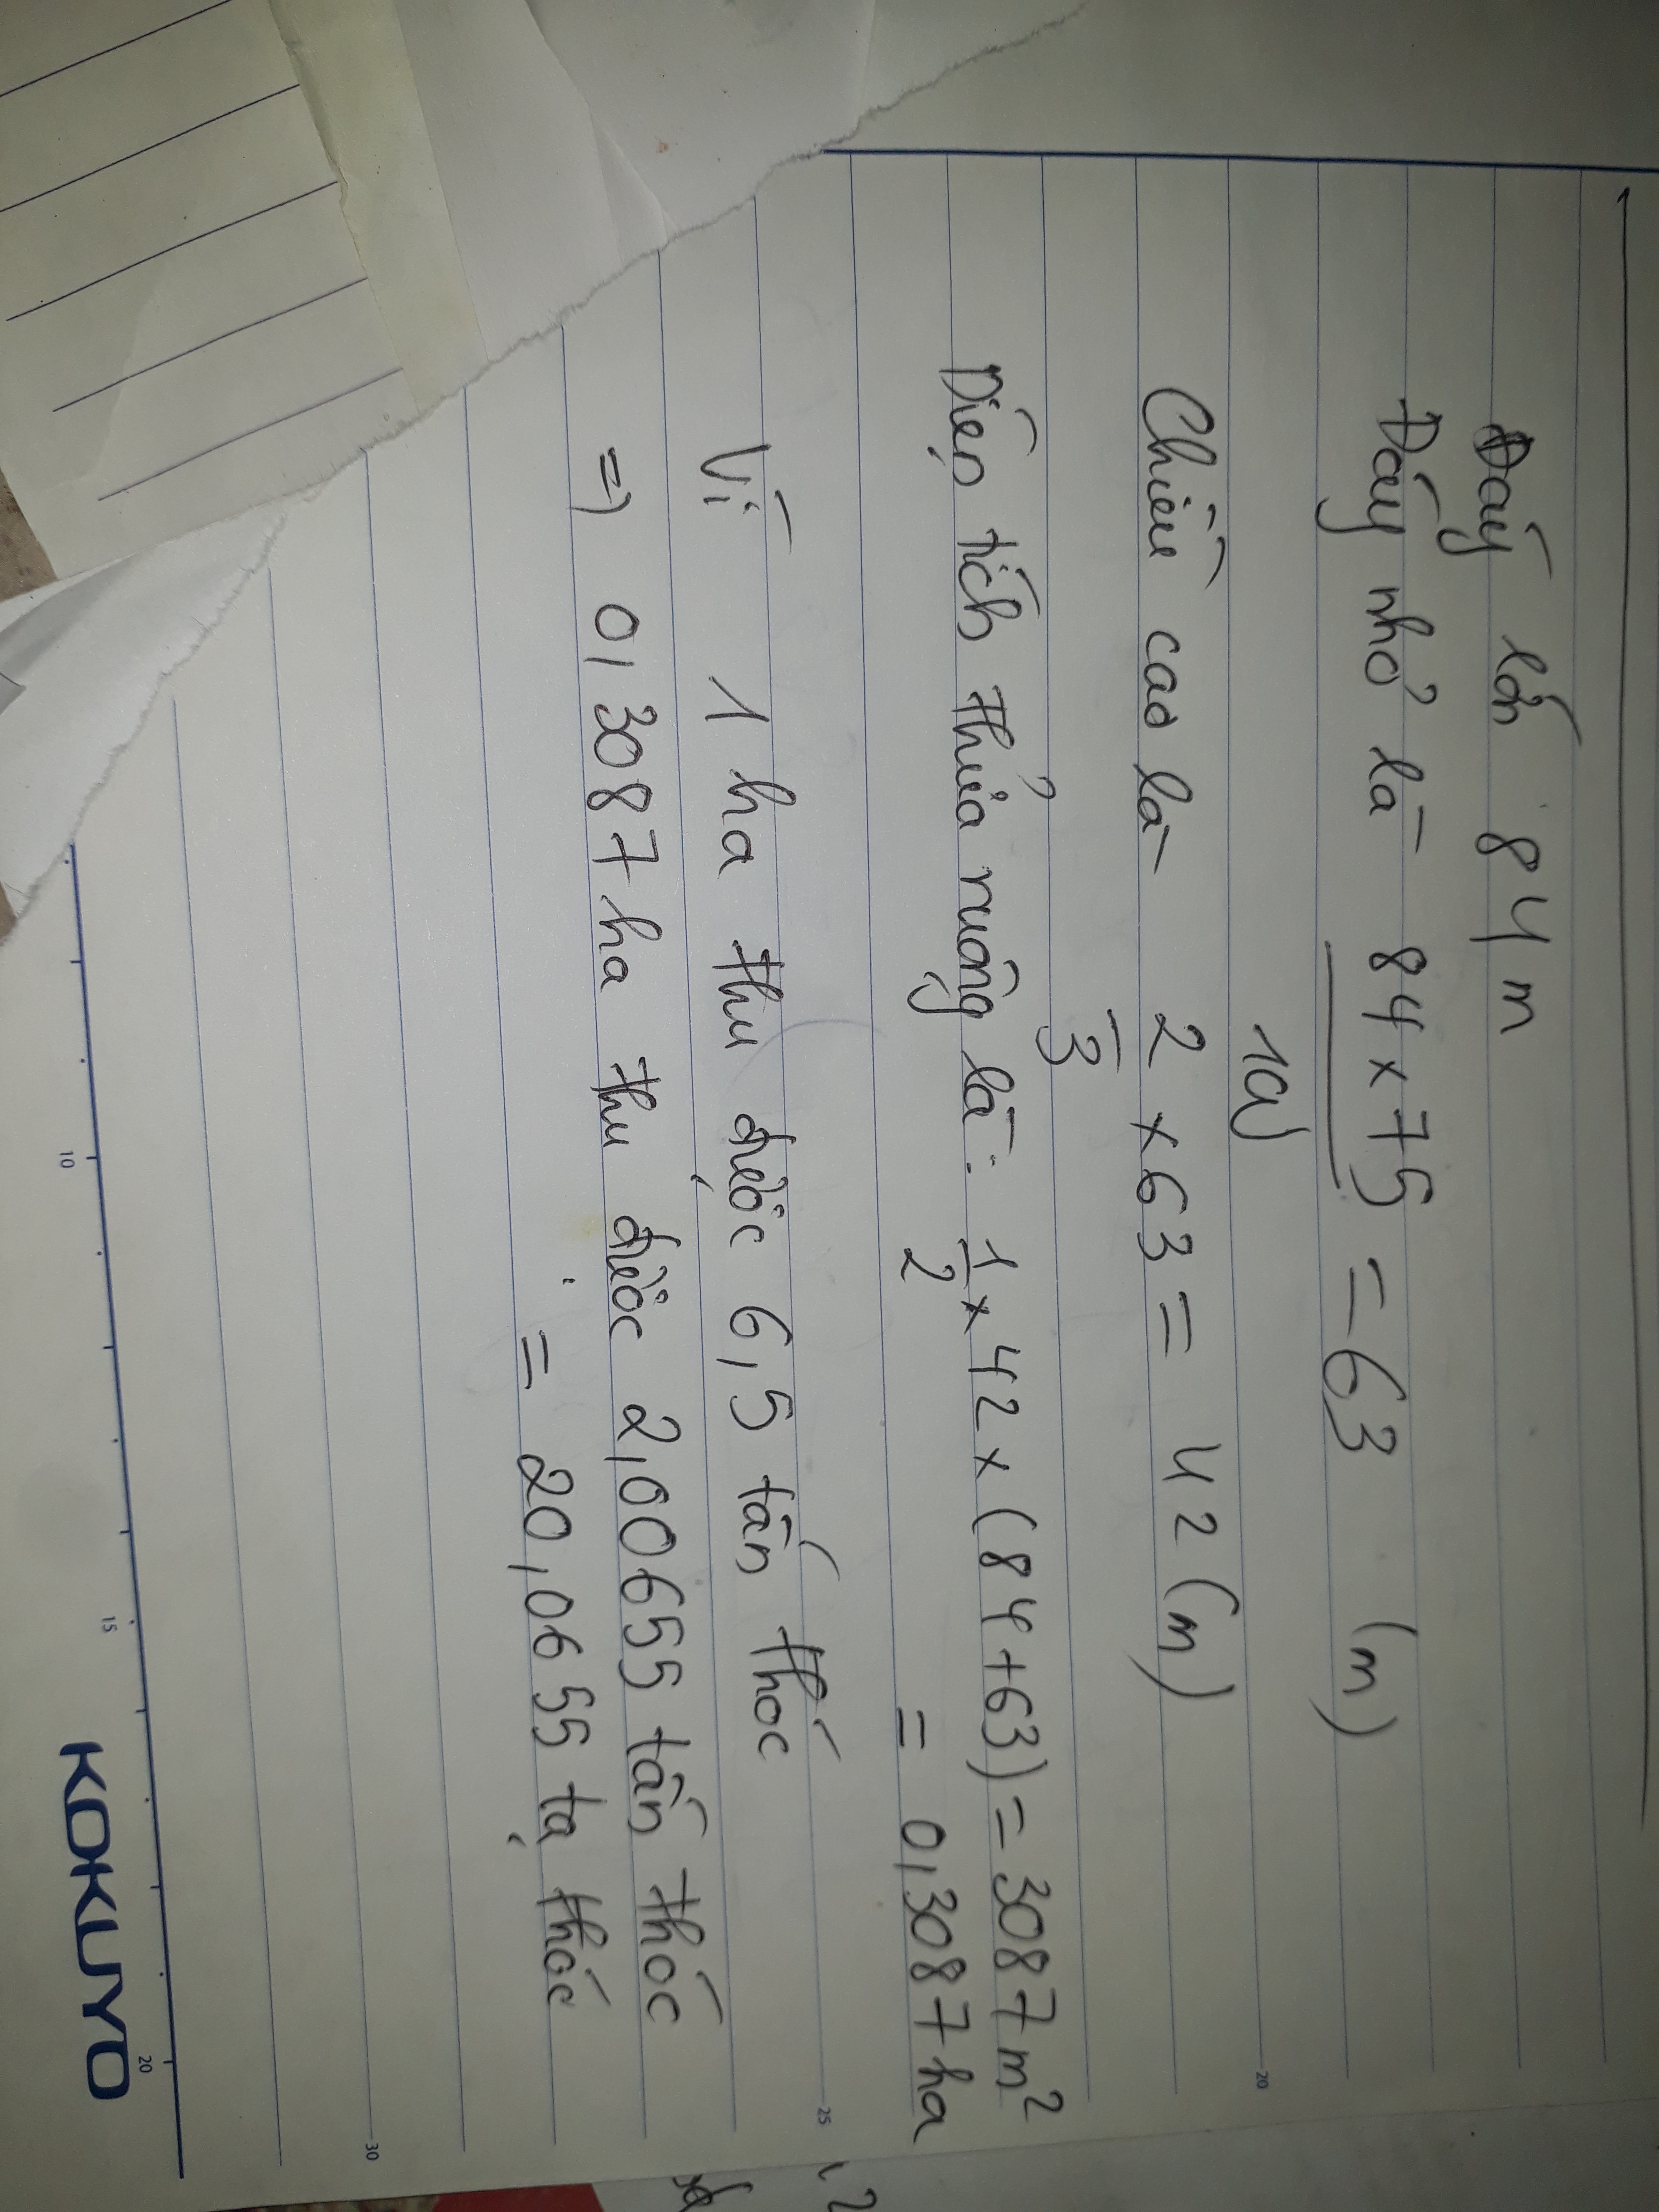 Đáy lớn 84 m
Đáy nhỏ là 84 x 75 = 63 (m)
100
Chiều cao là 2 x 63 = 42 (m)
3
Diện tích thửa ruộng là: 1 x 42 x (84+63) = 3087 m²
2
= 0,3087 ha
Vì 1 ha thu được 6,5 tấn thóc
=) 0,3087 ha thu được 2,00655 tấn thóc
= 20,0655 tạ thóc
10
15
20
20
25
30
KOKUYO